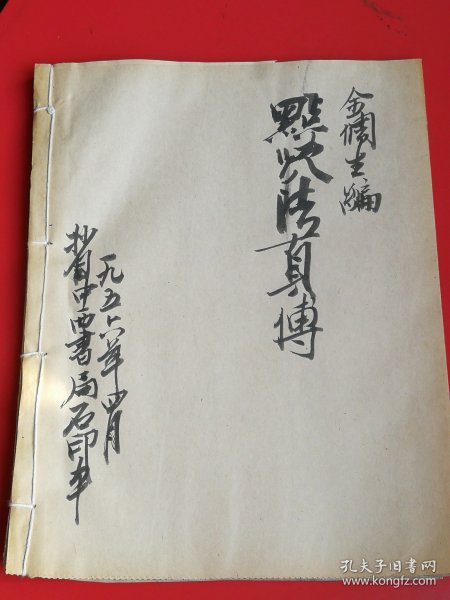 金倜生编
點穴法真傳
一九五六年四月
抄自中西書局石印本
孔夫子旧书网
www.kongfz.com